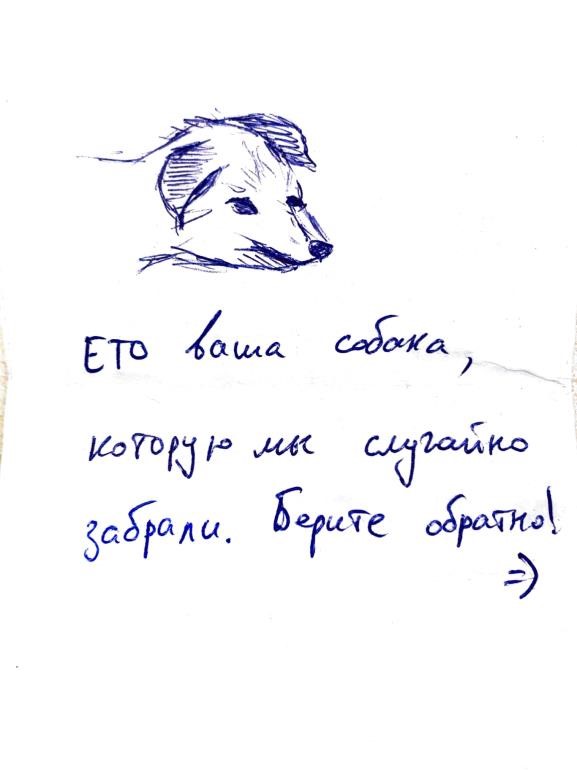 ЕТО ваша собака,
которую мы случайно
забрали. Берите обратно!
=)